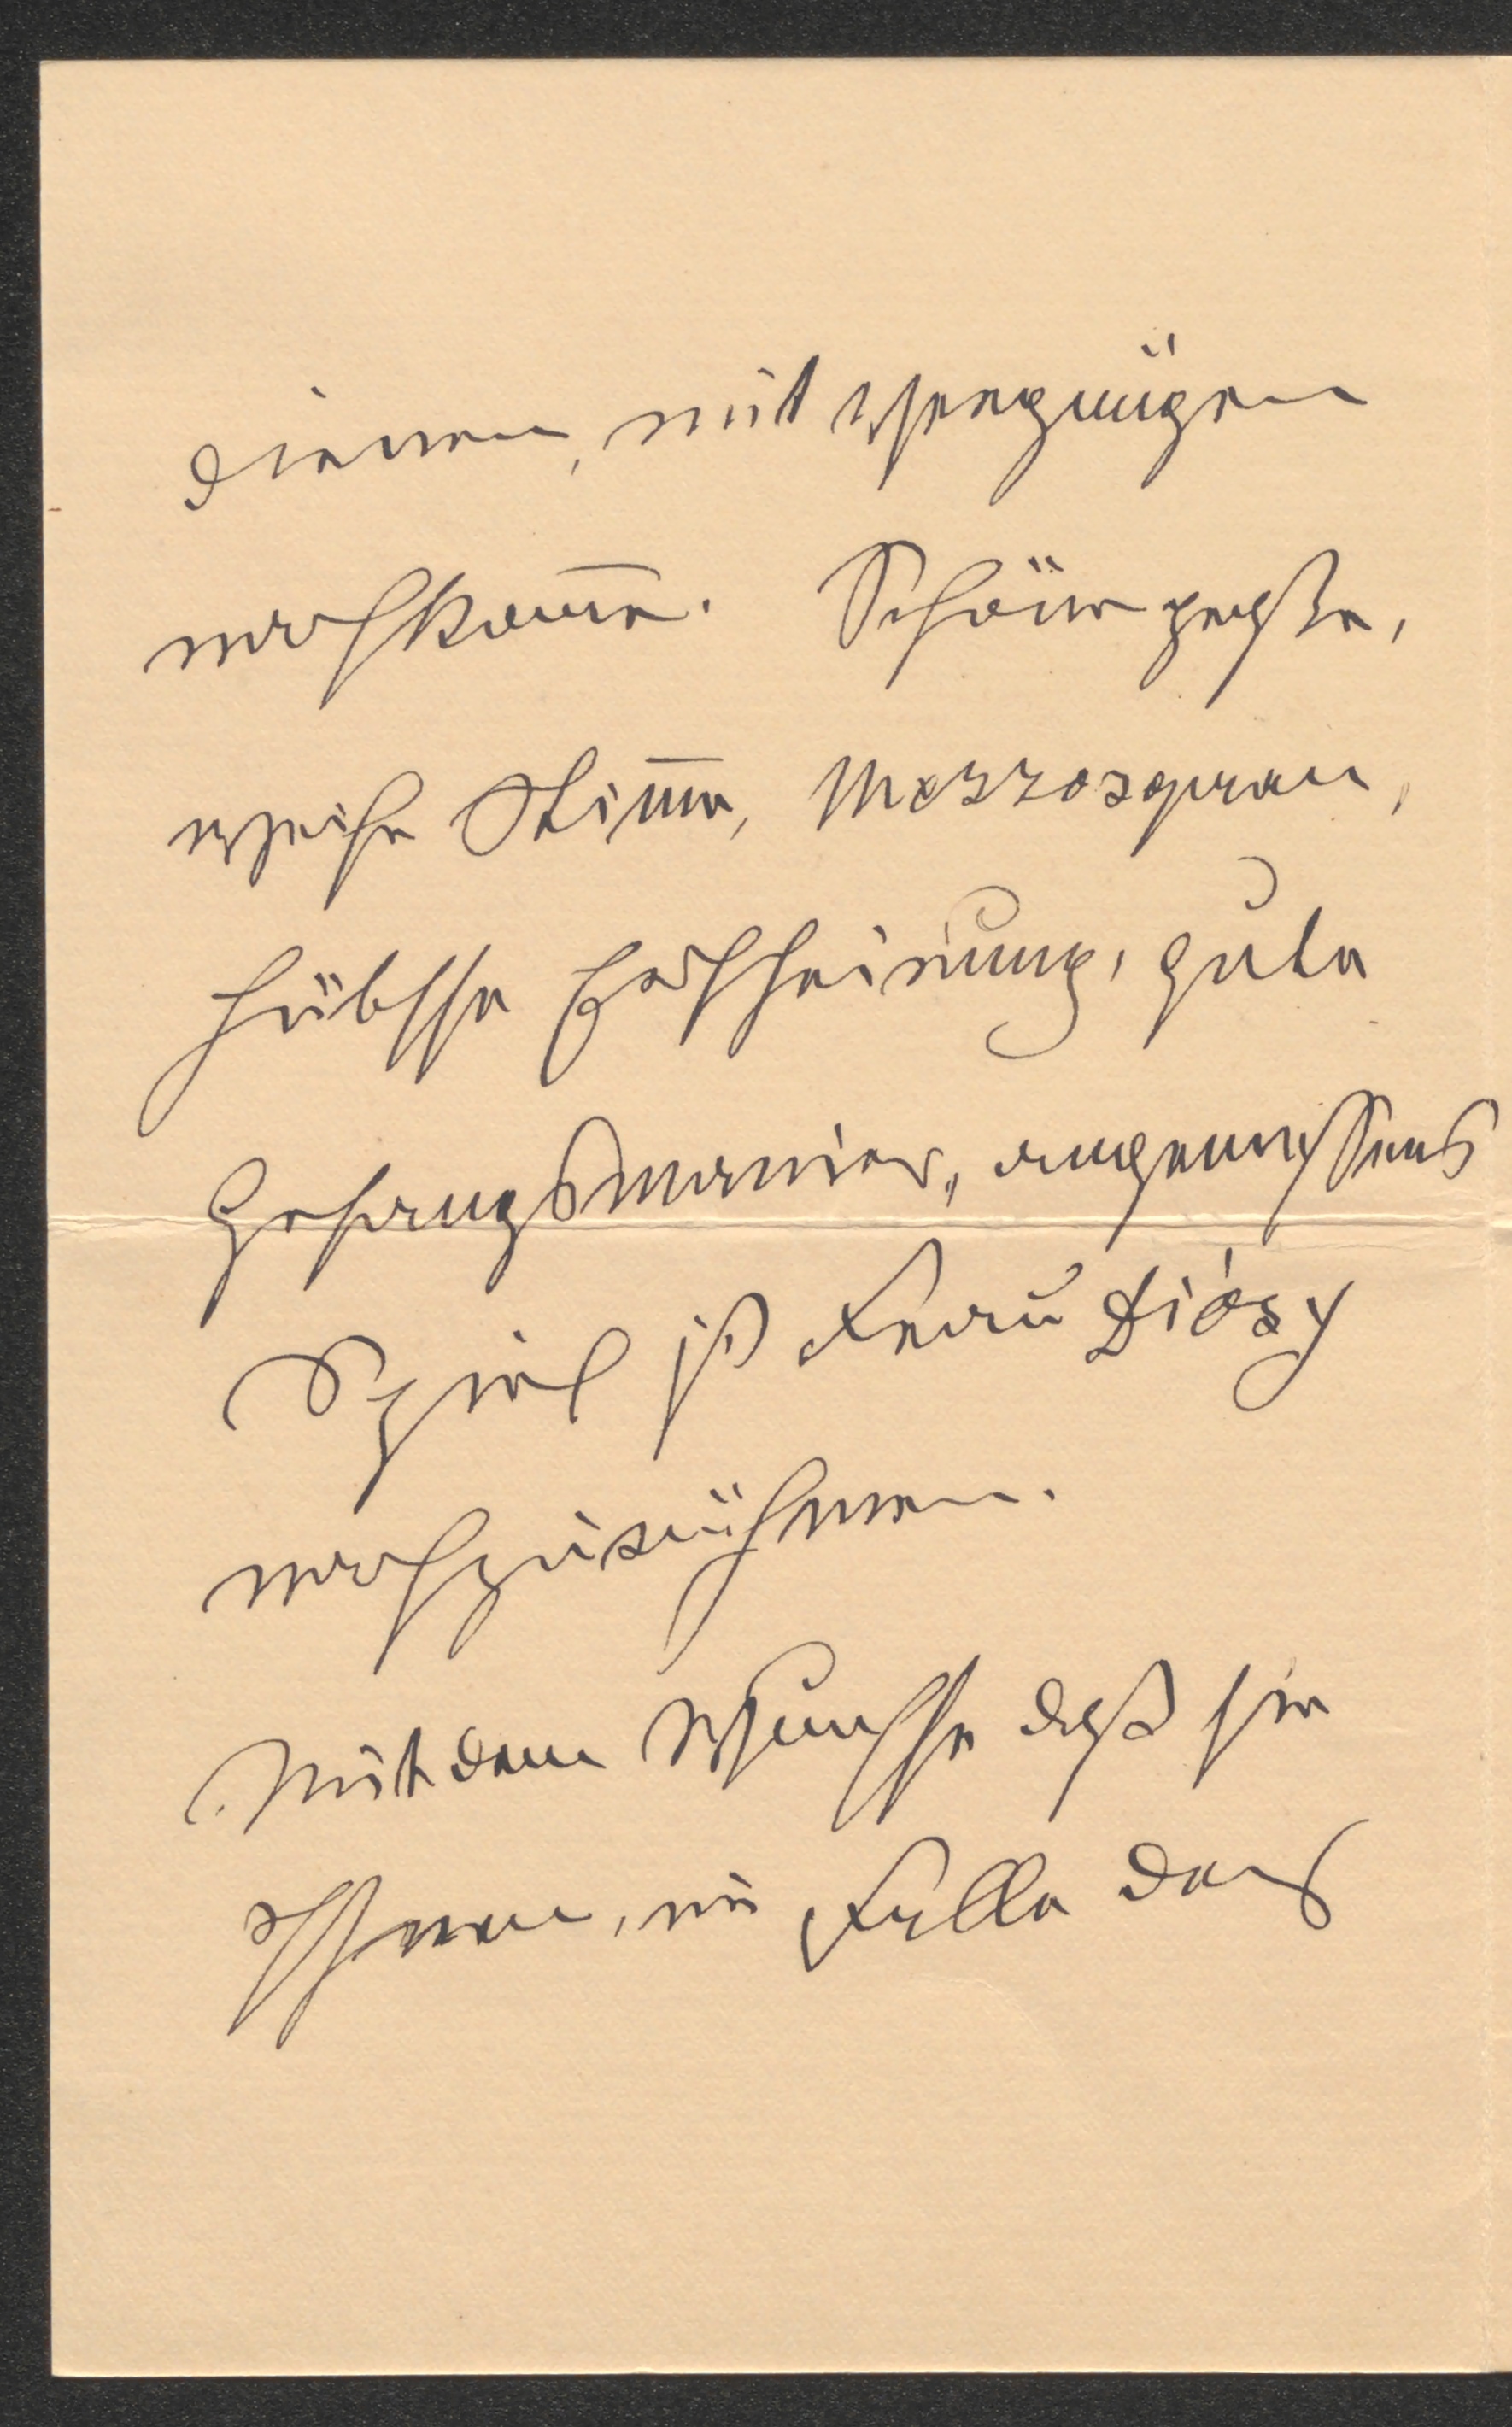 dienen, mit Vergnügen
nachkom̅e. Schöne große,
weiche Stim̅e, Mezzosopran,
hübsche Erscheinung, gute
Gesangsmanier, angemessenes
Spiel ist Frau Diósy
nachzurühmen.
Mit dem Wunsche daß sie
Ihnen, im Falle des